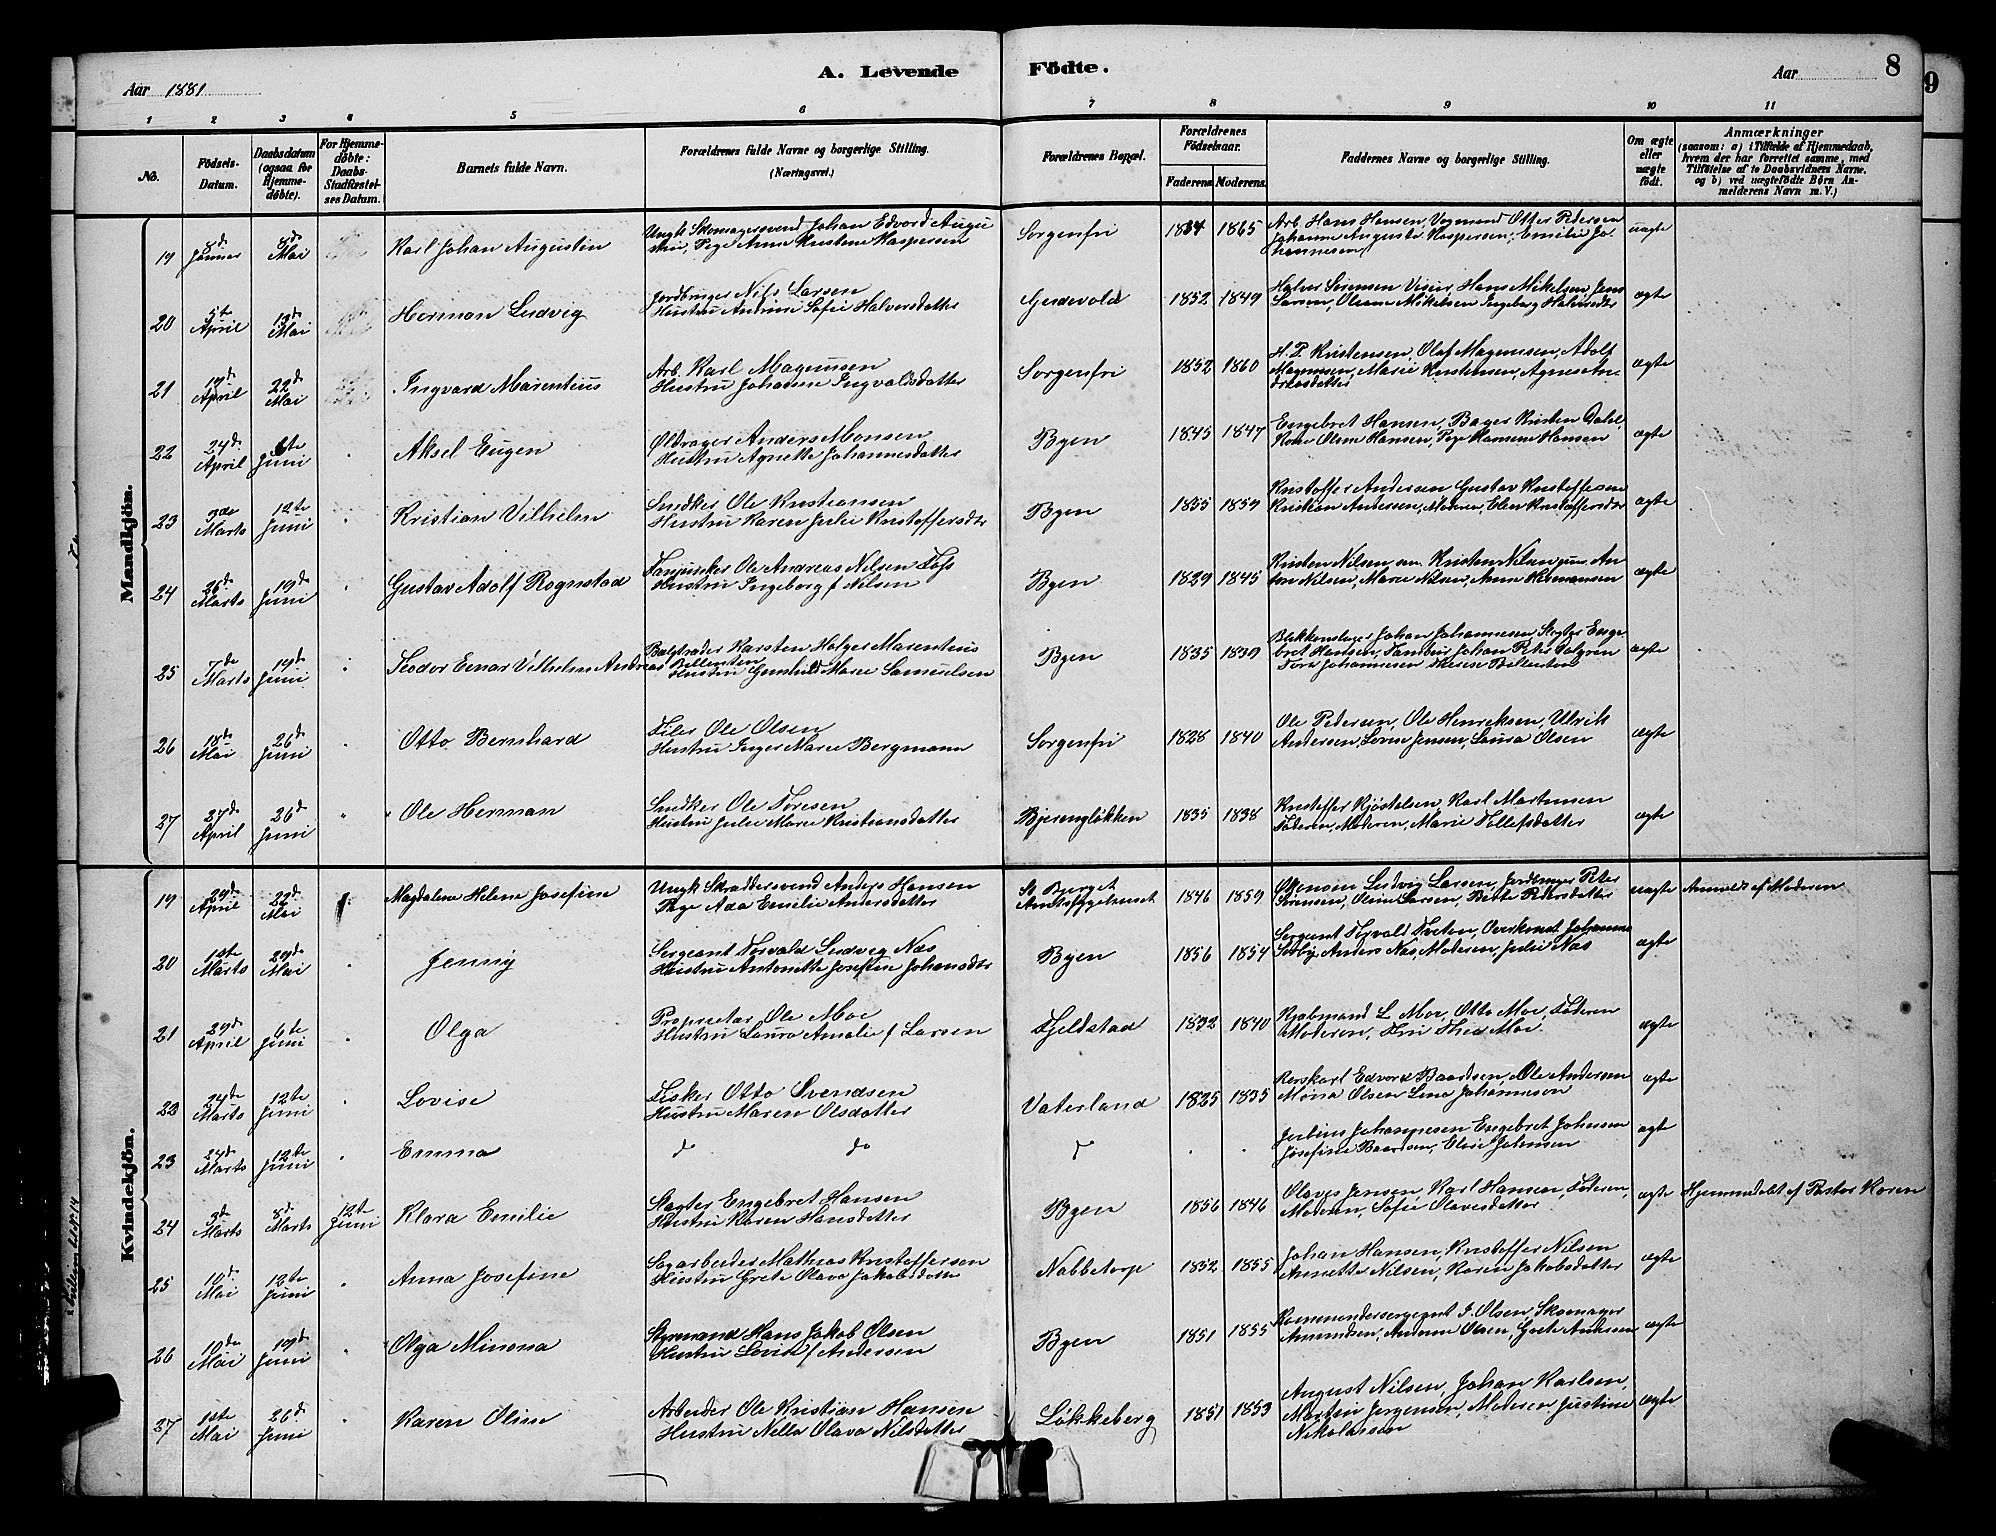 A. Levende Fødte.
Aar 1881
Aar
8
9
1 2 3 4 5 6 7 8 9 10 11
No.
Fødsels-Datum.
Daabsdatum (ogsaa for Hjemme-døbte).
For Hjemme-døbte: Daabs-Stadfæstel-ses Datum.
Barnets fulde Navn.
Forældrenes fulde Navne og borgerlige Stilling. (Næringsvei.)
Forældrenes Bopæl.
Forældrenes Fødselsaar.
Faderens Moderens
Faddernes Navne og borgerlige Stilling.
Om ægte eller uægte født.
Anmærkninger
(saasom: a) i Tilfælde af Hjemmedaab,
hvem der har forrettet samme, med
Tilføielse af to Daabsvidners Navne,
og b) ved uægtefødte Børn An-
melderens Navn m. V.)
Mandkjön.
19 8de Januar 8de Mai Karl Johan Augustin
Ungk Skomagersvend Johan Edvard Augu
stin, Pige Anne Kristine Kaspersen
Sorgenfri 1865
Arb. Hans Hansen, Vognmand Otter Pedersen
Johanne Auguste Kaspersen, Emilie Jo
hannesen
uægte
20 5te April 13de Mai Herman Ludvig
Jordbruger Nils Larsen
Hustru Andrine Sofie Halversdatter
Gudevold 1852 1849
Halvor Sørensen Hans Mikelsen, Jens
Larsen, Oleane Mikelsen Ingeborg Halversdtr
ægte
21 19de April 22de Mai Ingvard Marentius
Arb. Karl Magnusen
Hustru Johanne Ingvaldsdatter
Sorgenfri 1852 1860
H. P. Kristensen, Olaf Magnusen, Adolf
Magnusen, Marie Kristensen, Agnes An
dreasdatter
ægte
22 24de April 6te Juni Aksel Eugen
Øldrager Anders Monsen
Hustru Agnette Johannesdatter
Byen 1845 1847
Engebret Hansen, Bager Kristen Dahl,
Kone Oline Hansen, Pige Hansine Hansen
ægte
23 3de Marts 12te Juni Kristian Vilhelm
Snedker Ole Kristiansen
Hustru Karen Julie Kristoffersdtr
Byen 1855 1859
Kristoffer Andersen Gustav Kristoffersen
Kristian Andersen, Moderen, Elen Kristoffersdtr
ægte
24 26de Marts 19de Juni Gustav Adolf Rognstad
Ole Andreas Nilsen Foss
Hustru Ingeborg f Nilsen
Byen 1829 1845
Kristen Nilsen sen. Kristen Nilsen jun. An
ton Nilsen, Marie Nilsen, Anne Hermansen
ægte
25 7de Marts 19de Juni Teodor Einar Vilhelm Andreas
Karsten Holger Marentius
Bellensten
Hustru Gunhild Marie Samuelsen
Byen 1835 1839
Blikkenslager Johan Johannesen Slagter Enge
bret Hansen, Tambur Johan Peter Dalgren
Tora Johannesen Therese Bellensten
ægte
26 18de Mai 26de Juni Otto Bernhard
Filer Ole Olsen
Hustru Inger Marie Bergmann
Sorgenfri 1828 1840
Ole Pedersen, Ole Henriksen, Ulrik
Andersen, Lovise Jensen, Laura Olsen
ægte
27 27de April 26de Juni Ole Herman
Snedker Ole Toresen
Hustru Julie Marie Kristiansdatter
Bjerengløkken 1835 1838
Kristoffer Kjøstelsen, Karl Martinsen
Faderen, Moderen, Marie Tollefsdatter
ægte
Kvindekjön.
19 29de April 22de Mai Magdalene Helene Josefine
Ungk Skræddersvend Anders Hansen
Pige Ada Emilie Andersdatter
St. Bjerget
Amtssygehuset 1846 1859
Ludvig Larsen, Jordbruger Peter
Sørensen, Oline Larsen, Bette Pedersdatter
uægte Anmeldt af Moderen
20 1ste Marts 29de Mai Jenny
Sergeant Torvald Ludvig Næs
Hustru Antonette Josefine Johansdtr
Byen 1856 1854
Sergeant Torvald Tveten, Johannes
Anders Næs, Moderen, Julie Næs
ægte
21 29de April 6te Juni Olga
Proprietær Ole Moe
Hustru Laura Amalie f Larsen
Fjeldstad 1832 1840
Kjøbmand L. Moe, Otto Moe, Faderen
Moderen, Fru Thea Moe
ægte
22 24de Marts 12te Juni Lovise
Fisker Otto Svendsen
Hustru Maren Olsdatter
Vaterland 1825 1835
Rorskarl Edvard Baardsen, Ole Andersen
Maria Olsen Lina Johannesen
ægte
23 24de Marts 12te Juni Emma
do do do
Julius Johannesen Engebret Johansen
Josefine Baardsen, Elise Johansen
ægte
24 3de Marts 8de Marts 12te Juni Klara Emilie
Slagter Engebret Hansen
Hustru Karen Hansdatter
Byen 1856 1846
Olaves Jensen, Karl Hansen, Faderen,
Moderen, Sofie Olavesdatter
ægte Hjemmedøbt af Pastor Koren
25 10de Mai 12te Juni Anna Josefine
Sagarbeider Mathias Kristoffersen
Hustru Grete Olava Jakobsdatter
Nabbetorp 1852 1855
Johan Hansen, Kristoffer Nilsen
Annette Nilsen, Karen Jakobsdatter
ægte
26 10de Mai 19de Juni Olga Minona
Styrmand Hans Jakob Olsen
Hustru Lovise f Andersen
Byen 1851 1855
Kommandersergeant I. Olsen, Skomager
Amundsen, Andrine Olsen, Grete Andersen
ægte
27 1ste Mai 26de Juni Karen Oline
Arbeider Ole Kristian Hansen
Hustru Nella Olava Nilsdatter
Løkkeberg 1851 1853
August Nilsen, Johan Karlsen,
Martin Jørgensen, Moderen, Justine
Nikolaisen
ægte